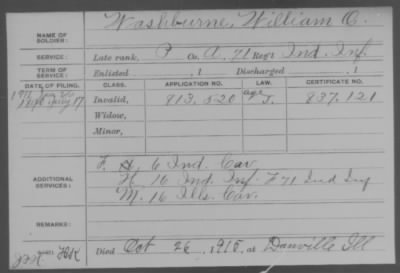 NAME OF SOLDIER: Washburne, William O.
SERVICE: Late rank, P Co. A, 71 Reg't Ind. Inf.
TERM OF SERVICE: Enlisted , 1 Discharged , 1
DATE OF FILING. CLASS. APPLICATION NO. LAW. CERTIFICATE NO.
1890 July 17 Invalid, 813.520 age J. 837.121
Widow,
Minor,
F. H, 6 Ind. Cav.
ADDITIONAL SERVICES: H. 16 Ind. Inf. F 71 Ind Inf
M. 16 Ills. Cav.
REMARKS:
Died Oct 26, 1915, at Danville Ill